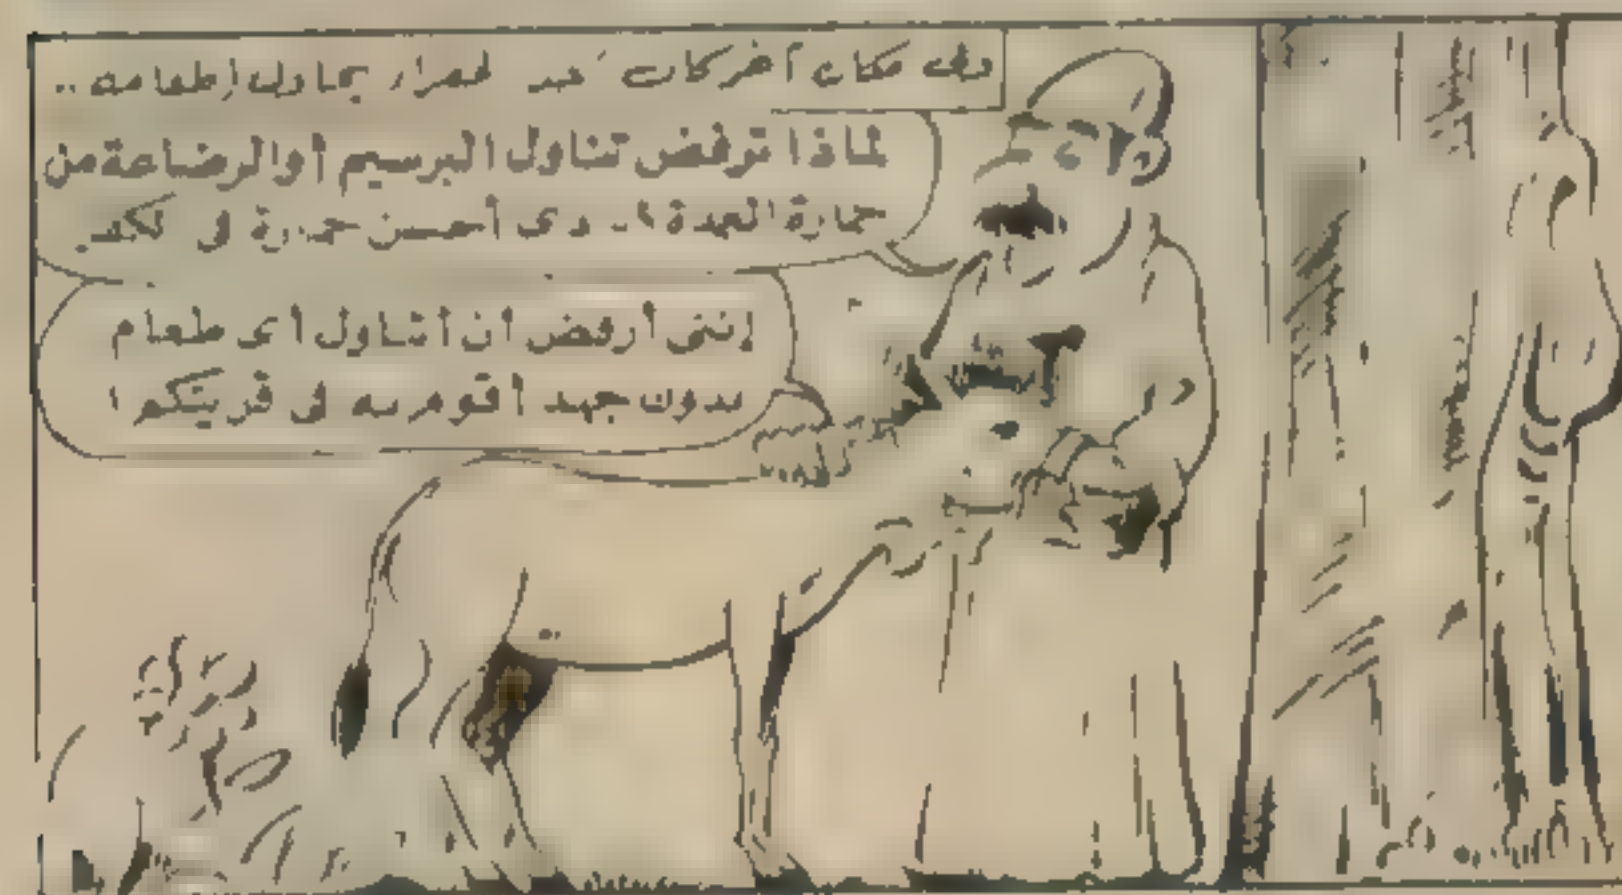 وفى مكان آخر كان عبد يحاول إطعامه ..
لماذا ترفض تناول البرسيم أو الرضاعة من
حمارة العمدة ؟.. دى أحسن حمارة فى
إننى أرفض أن أتناول أى طعام
بدون جهد أقوم به فى قريتكم !